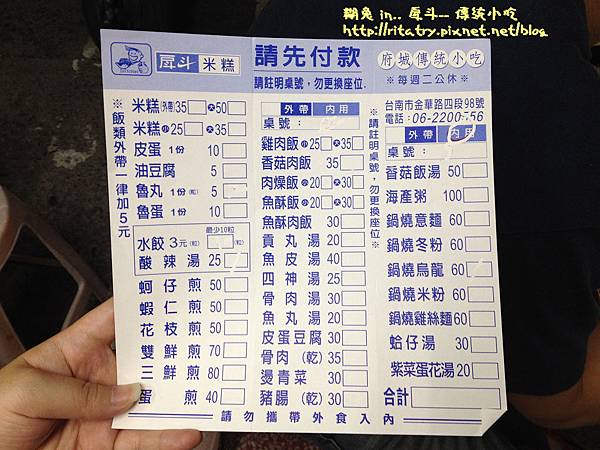 糊兔 in.. 戽斗-- 傳統小吃
http://ritatry.pixnet.net/blog
戽斗 米糕
請先付款
請註明桌號，勿更換座位.
府城傳統小吃
※每週二公休※
台南市金華路四段98號
電話：06-2200756
※飯類外帶一律加5元
米糕(外帶)35 大50
米糕小25 大35
皮蛋 1份 10
油豆腐 5
魚丸 1份(粒) 5
魯蛋 1份 10
最少10粒
水餃 3元(粒) (粒)
酸辣湯 25
蚵仔煎 50
蝦仁煎 50
花枝煎 50
雙鮮煎 70
三鮮煎 80
蛋煎 40
外帶 內用
桌號：
雞肉飯小25 大35
香菇肉飯 35
肉燥飯小20 大30
魚酥飯小20 大30
魚酥肉飯 30
貢丸湯 20
魚皮湯 40
四神湯 25
骨肉湯 30
魚丸湯 20
皮蛋豆腐 30
骨肉(乾) 35
燙青菜 30
豬腸(乾) 30
※請註明桌號，勿更換座位※
外帶 內用
桌號：
香菇飯湯 50
海產粥 100
鍋燒意麵 60
鍋燒冬粉 60
鍋燒烏龍 60
鍋燒米粉 60
鍋燒雞絲麵 60
蛤仔湯 30
紫菜蛋花湯 20
合計
請勿攜帶外食入內